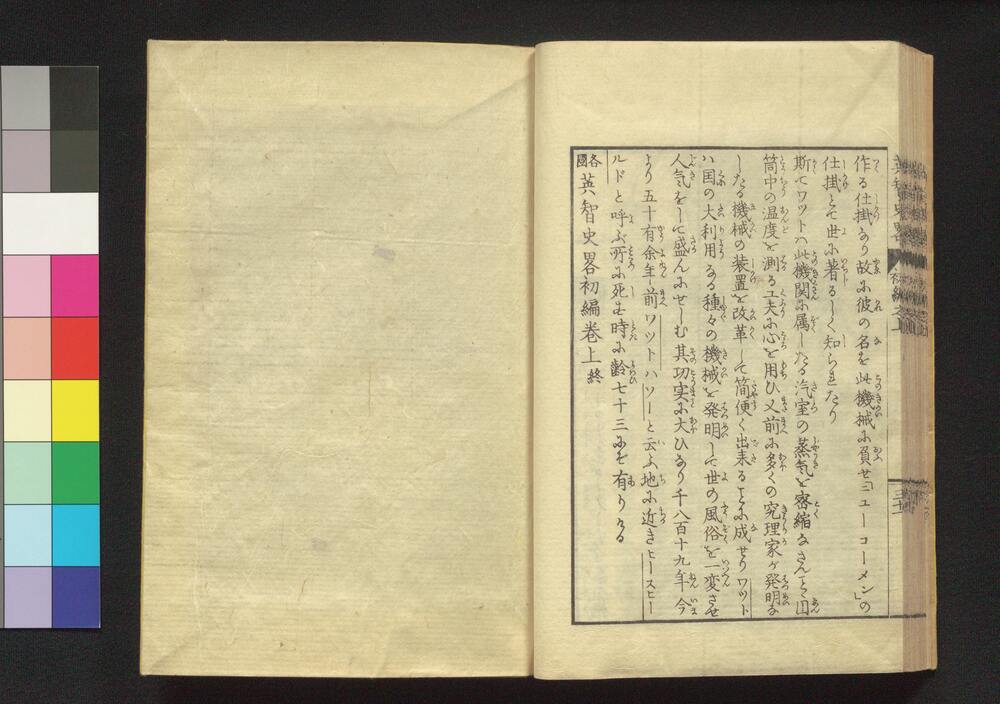 作る仕掛あり故に彼の名を此機械に負せ「ニューコーメン」の
仕掛とて世に著るしく知られたり
斯てワットハ此機関に属したる汽室の蒸気を密縮なさんと円
筒中の温度を測る工夫に心を用ひ又前に多くの究理家が発明な
したる機械の装置を改革して簡便く出来るように成せりワット
ハ国の大利用なる種々の機械を発明して世の風俗を一変させ
人気をして盛んにせしむ其功実に大ひなり千八百十九年今
より五十有余年前ワットハソーと云ふ地に近きヒースヒー
ルドと呼ぶ所に死す時に齢七十三にぞ有りける
各國英智史畧初編巻上終
英智史畧
初編之上
三十一